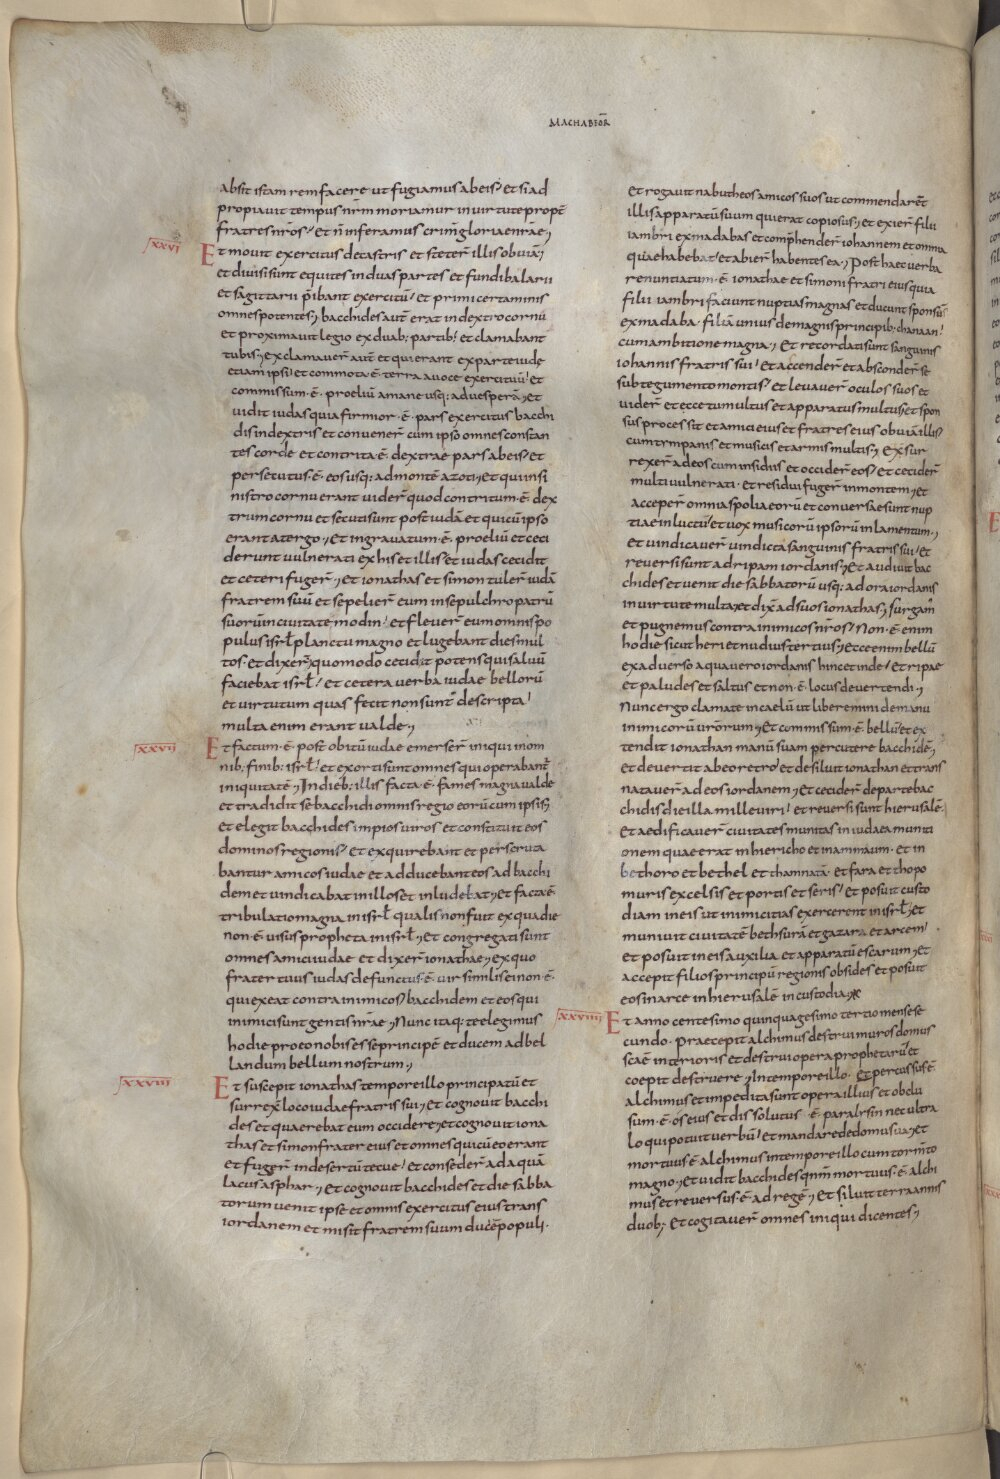 MACHABEOR̄
absit istam rem facere ut fugiamus ab eis; et si ad
propiavit tempus nr̄m moriamur in virtute propt̄
fratres nr̄os; et n̄ inferamus crim̄ gloriae nr̄ae;
xxvi
Et movit exercitus de castris et steter̄ illis obviā;
et divisi sunt equites in duas partes et fundibalarii
et sagittarii p̄ibant exercitū; et primi certaminis
omnes potentes; bacchides autē erat in dextro cornu
et proximavit legio ex duab; partib; et clamabant
tubis; exclamaver̄ autē et qui erant ex parte iudę
etiam ipsi; et commota ē terra a voce exercituū; et
commissum ·ē· proeliū a mane usq; ad vesperā; et
vidit iudas quia firmior ·ē· pars exercitus bacchi
dis in dextris et convener̄ cum ipso omnes constan
tes corde et contrita ·ē· dextrae pars ab eis; et
persecutus ·ē· eos usq; ad montē azoti; et qui in si
nistro cornu erant vider̄ quod contritum ·ē· dex
trum cornu et secuti sunt post iudā et qui cū ipso
erant a tergo; Et ingravatum ·ē· proeliū et ceci
derunt vulnerati ex his et illis et iudas cecidit
et ceteri fuger̄; et ionathas et simon tuler̄ iudā
fratrem suū et sepelier̄ eum in sepulchro patrū
suorū in civitate modin; et flever̄ eum omnis po
pulus isrł planctu magno et lugebant dies mul
tos· et dixer̄; quomodo cecidit potens qui salvū
faciebat isrł; Et cetera verba iudae bellorū
et virtutum quas fecit non sunt descripta;
multa enim erant valde;
xxvii
Et factum ·ē· post obitū iudae emerser̄ iniqui in om
nib; finib; isrł; et exorti sunt omnes qui operabant̄
iniquitatē; In dieb; illis facta ·ē· fames magna valde
et tradidit se bacchidi omnis regio eorū cum ipsis;
et elegit bacchides impios viros et constituit eos
dominos regionis; Et exquirebant et perscruta
bantur amicos iudae et adducebant eos ad bacchi
dem et vindicabat in illos et inludebat; et facta ē
tribulatio magna in isrł qualis non fuit ex qua die
non ·ē· visus propheta in isrł; Et congregati sunt
omnes amici iudae et dixer̄ ionathae; ex quo
frater tuus iudas defunctus ·ē· vir similis ei non ·ē·
qui exeat contra inimicos; bacchidem et eos qui
inimici sunt gentis nr̄ae; Nunc itaq; te elegimus
hodie pro eo nobis esse principē et ducem ad bel
landum bellum nostrum;
xxviii
Et suscepit ionathas tempore illo principatū et
surrex̄ loco iudae fratris sui; Et cognovit bacchi
des et quaerebat eum occidere; et cognovit iona
thas et simon frater eius et omnes qui cū eo erant
et fuger̄ in desertū tecue; et conseder̄ ad aquā
lacus asphar; Et cognovit bacchides et die sabba
torum venit ipse et omnis exercitus eius trans
iordanem et misit fratrem suum ducē populi·
Et rogavit nabutheos amicos suos ut commendarēt
illis apparatū suum qui erat copiosus; et exier̄ filii
iambri ex madabas et comp̄hender̄ iohannem et omnia
quae habebat; et abier̄ habentes ea; Post haec verba
renuntiatum ·ē· ionathae et simoni fratri eius quia
filii iambri faciunt nuptias magnas et ducunt sponsū
ex madaba· filiā unius de magnis principib; chanaan;
cum ambitione magna; Et recordati sunt sanguinis
iohannis fratris sui; et accender̄ et absconder̄ se
sub tegumento montis; et levaver̄ oculos suos et
vider̄ et ecce tumultus et apparatus multus; et spon
sus processit et amici eius et fratres eius obviā illis;
cum tympanis et musicis et armis multis; Ex sur
rexer̄ ad eos cum insidiis et occider̄ eos; et cecider̄
multi vulnerati· et residui fuger̄ in montem; et
acceper̄ omnia spolia eorū et conversae sunt nup
tiae in luctū; et vox musicorū ipsorū in lamentum;
et vindicaver̄ vindicta sanguinis fratris sui; Et
reversi sunt ad ripam iordanis; Et audivit bac
chides et venit die sabbatorū usq; ad ora iordanis
in virtute multa; et dix̄ ad suos ionathas; surgam̄
et pugnemus contra inimicos nr̄os; Non ·ē· enim
hodie sicut heri et nudius tertius; Ecce enim bellū
ex adverso aqua vero iordanis hinc et inde; et ripae
et paludes et saltus et non ·ē· locus devertendi;
Nunc ergo clamate in caelū ut liberemini de manu
inimicorū vr̄orum; Et commissum ·ē· bellū; et ex
tendit ionathan manū suam percutere bacchidē;
et devertit ab eo retro; et desiluit ionathan et trans
natavēr ad eos iordanem; Et cecider̄ de parte bac
chidis die illa mille viri; et reversi sunt hierusalē·
Et aedificaver̄ civitates munitas in iudaea muniti
onem quae erat in hiericho et in ammaum· et in
bethoro et bethel et thamnata· et fara et thopo
muris excelsis et portis et seris; et posuit custo
diam in eis ut inimicitias exercerent in isrł; et
munivit civitatē bethsurā et gatara· et arcem;
et posuit in eis auxilia et apparatū escarum; et
accepit filios principū regionis obsides et posuit
eos in arce in hierusalē in custodia;
xxviiii
Et anno centesimo quinquagesimo tertio mense se
cundo· praecepit alchimus destrui muros domus
scāē interioris et destrui opera prophetarū; et
coepit destruere; In tempore illo· Et percussus ē
alchimus et impedita sunt opera illius et oblu
sum ·ē· os eius et dissolutus ·ē· paralysin nec ultra
loqui potuit verbū; et mandare de domu sua; et
mortuus ē alchimus in tempore illo cum torm̄to
magno; Et vidit bacchides qm̄ mortuus ·ē· alchi
mus et reversus ·ē· ad regē; Et siluit terra annis
duob; Et cogitaver̄ omnes iniqui dicentes;